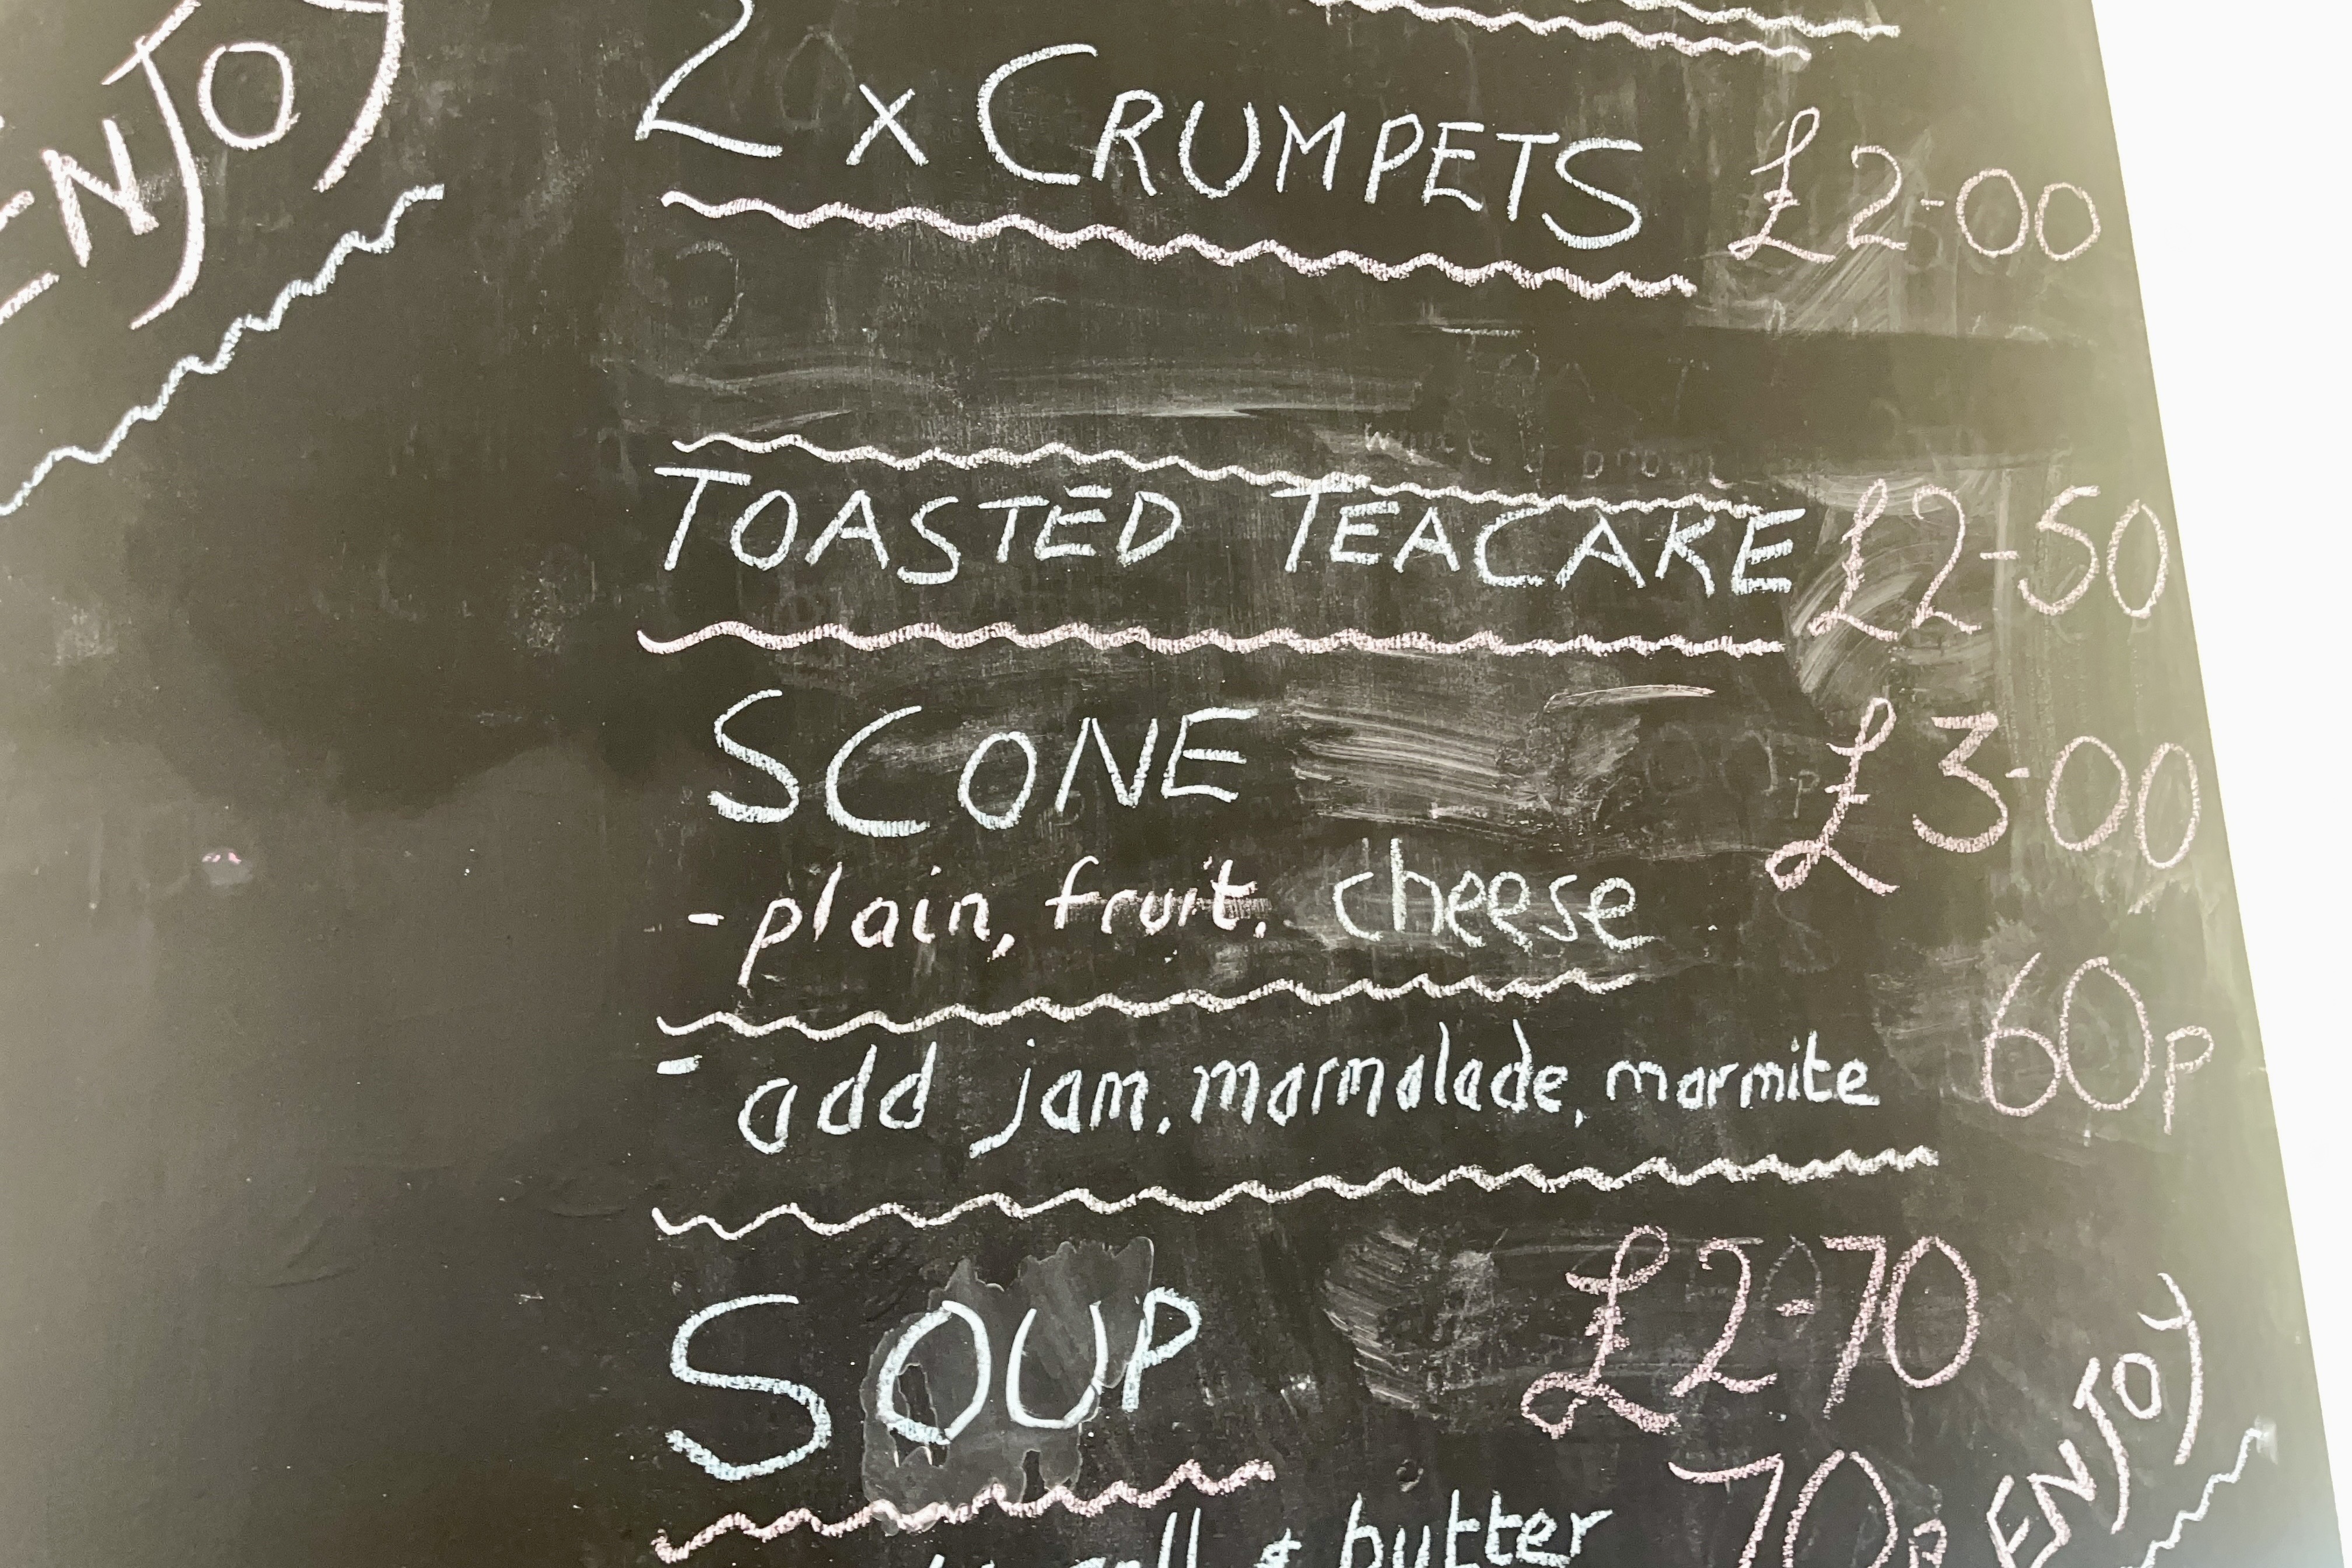 ENJOY
2 x CRUMPETS £2-00
TOASTED TEACAKE £2-50
SCONE £3-00
- plain, fruit, cheese
- add jam, marmalade, marmite 60p
SOUP £2-70
roll & butter 70p
ENJOY